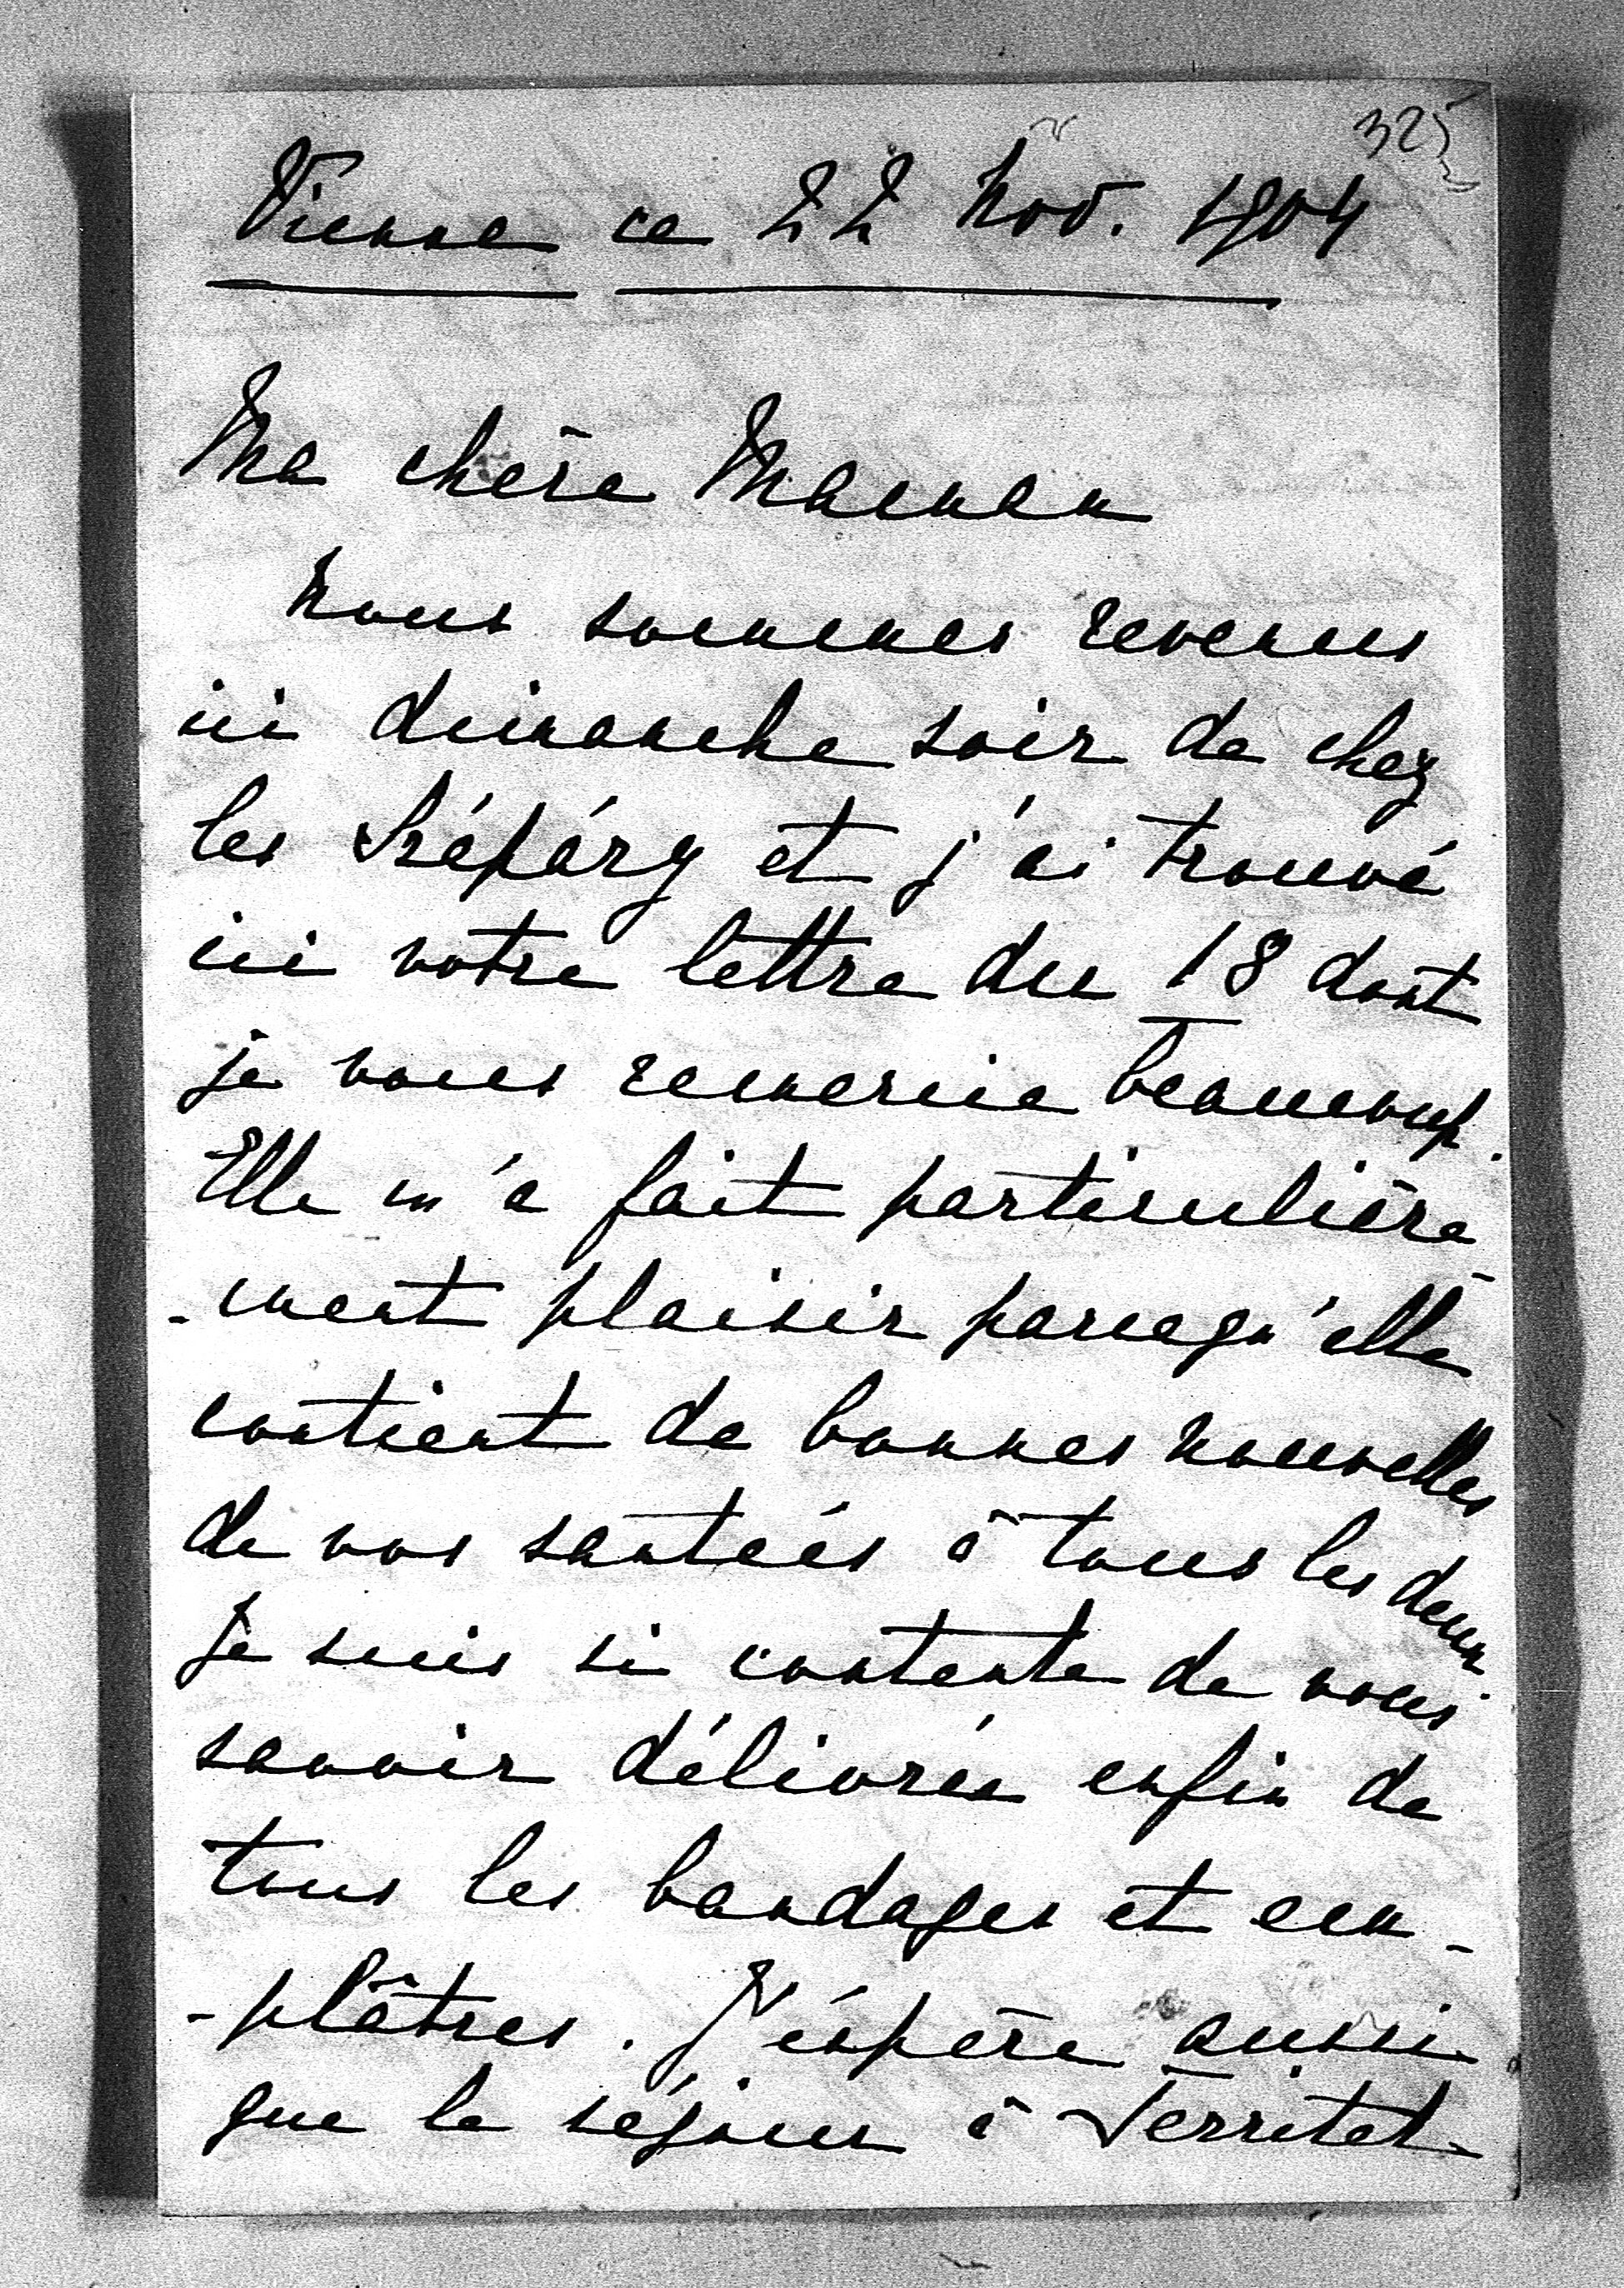 325
Vienne ce 22 Nov. 1904
Ma chère Maman
Nous sommes revenus
ici dimanche soir de chez
les et j'ai trouvé
ici votre lettre du 18 dont
je vous remercie beaucoup.
Elle m'a fait particulière
-ment plaisir parcequ'elle
contient de bonnes nouvelles
de vos santées à tous les deux
Je suis si contente de vous
savoir délivrée enfin de
tous les bandages et em-
-plâtres. J'éspère aussi
que le séjour à Territet